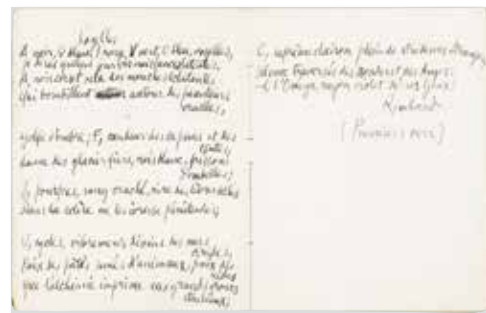 Voyelles
A noir, E blanc, I rouge, U vert, O bleu, voyelles,
je dirai quelque jour vos naissances latentes.
A, noir corset velu des mouches éclatantes
qui bombillent autour des puanteurs
cruelles,
golfe d'ombre; E, candeurs des vapeurs et des
tentes,
lance des glaciers fiers, rois blancs, frissons
d'ombelles;
I, pourpres, sang craché, rire des lèvres belles
dans la colère ou les ivresses pénitentes;
U, cycles, vibrements divins des mers
virides,
paix des pâtis semés d'animaux, paix des
rides
que l'alchimie imprime aux grands fronts
studieux;
O, suprême clairon plein de strideurs étranges,
silences traversés des Mondes et des Anges:
O l'Oméga, rayon violet de ses yeux
Rimbaud